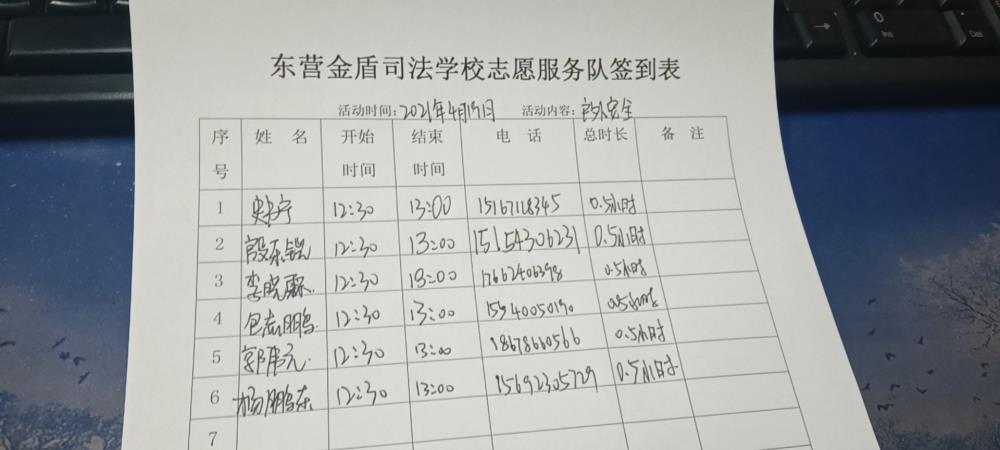 东营金盾司法学校志愿服务队签到表
活动时间：2021年4月19日 活动内容：安全
序号 姓名 开始时间 结束时间 电话 总时长 备注
1 宁 12:30 13:00 15167118345 0.5小时
2 殷东锐 12:30 13:00 15154306231 0.5小时
3 李晓霖 12:30 13:00 17662406398 0.5小时
4 包志鹏 12:30 13:00 15940050190 0.5小时
5 郭 元 12:30 13:00 18678660566 0.5小时
6 杨鹏东 12:30 13:00 15692305729 0.5小时
7